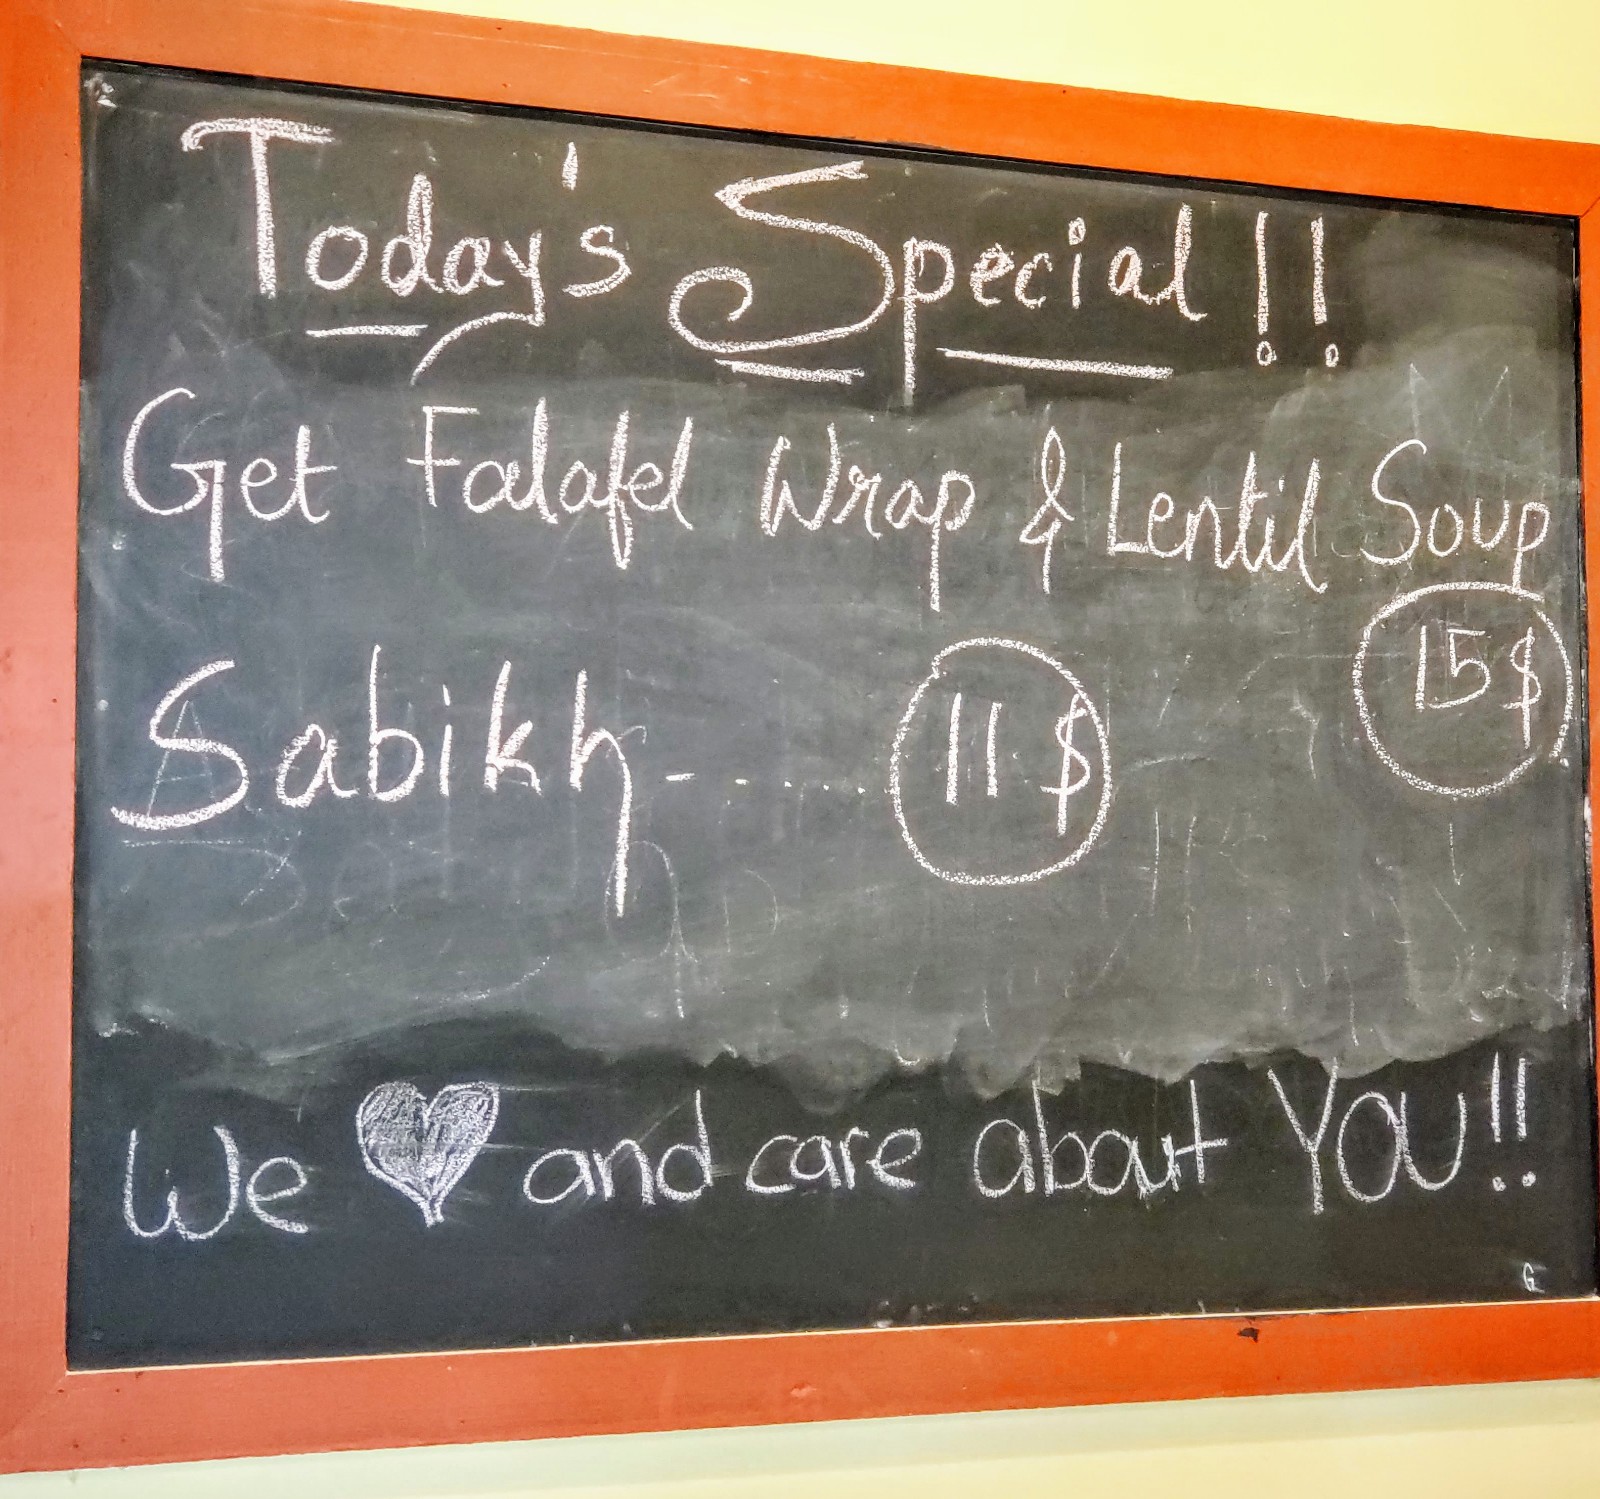 Today's Special!!
Get Falafel Wrap & Lentil Soup
15$
Sabikh-......11$
We ♥ and care about YOU!!
G